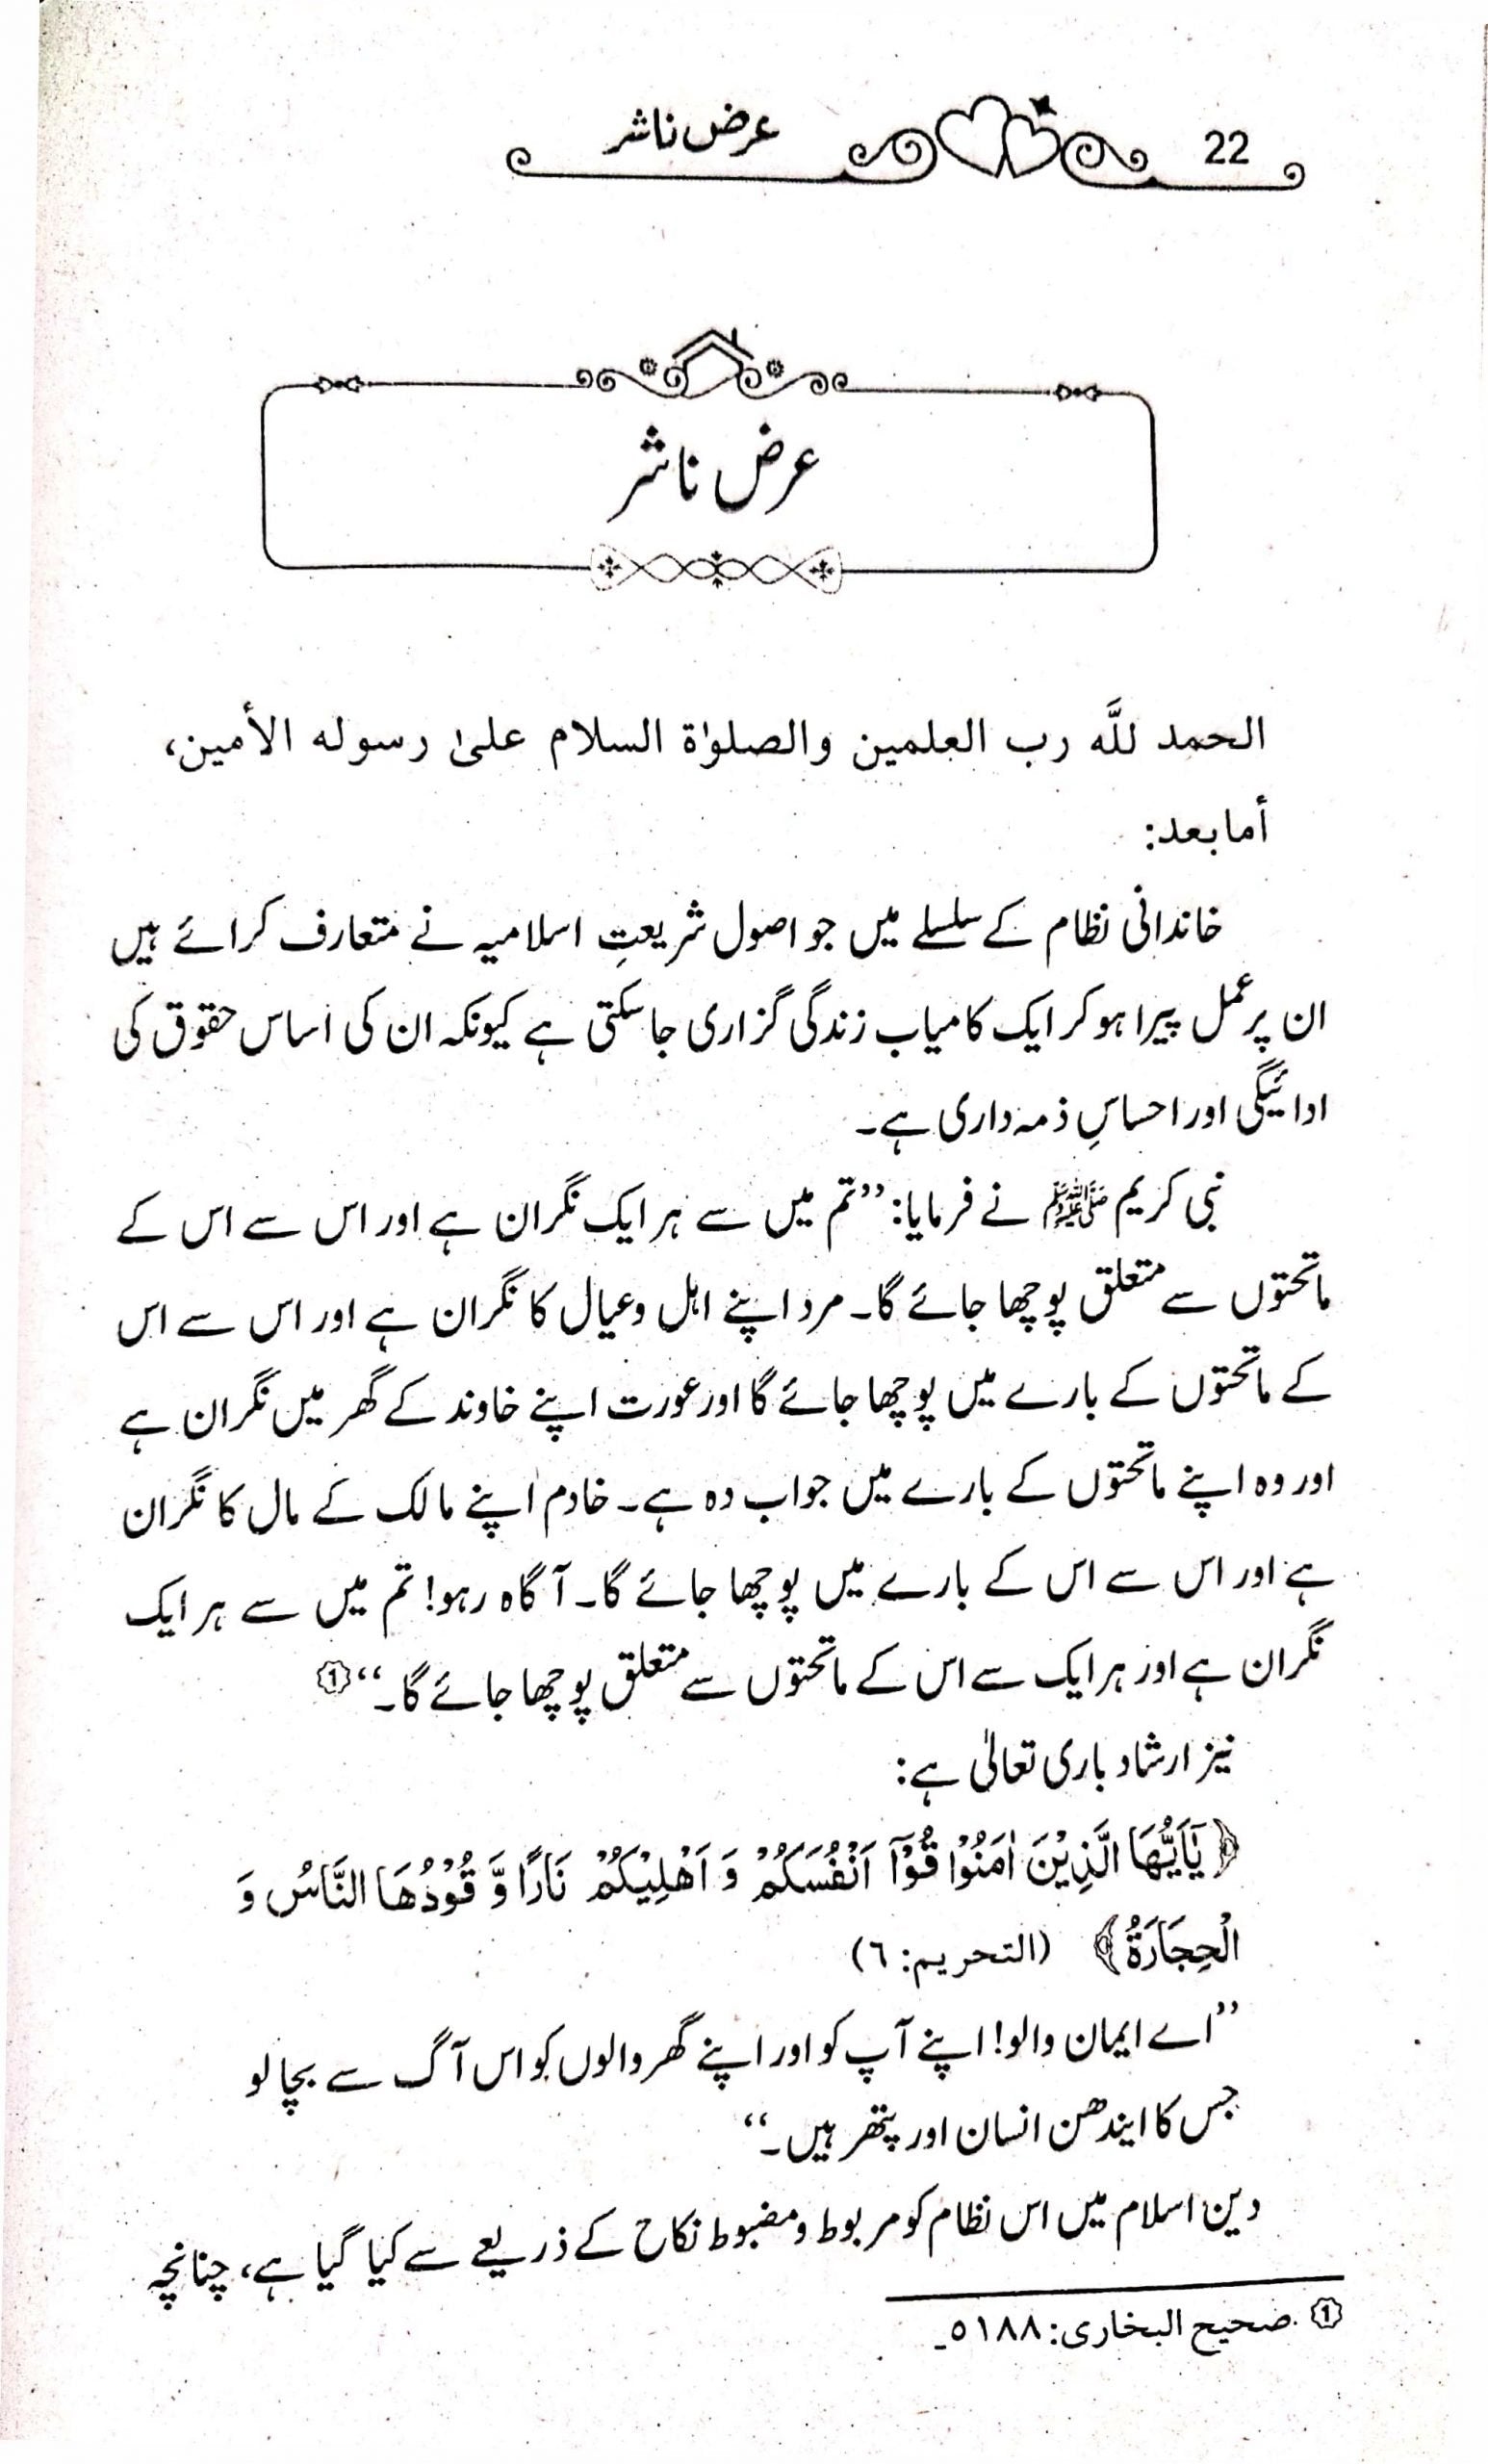 22 عرض ناشر
عرض ناشر
الحمد للَّه رب العلمين والصلوٰة السلام علىٰ رسوله الأمين،
أما بعد:
خاندانی نظام کے سلسلے میں جو اصول شریعتِ اسلامیہ نے متعارف کرائے ہیں
ان پر عمل پیرا ہو کر ایک کامیاب زندگی گزاری جا سکتی ہے کیونکہ ان کی اساس حقوق کی
ادائیگی اور احساسِ ذمہ داری ہے۔
نبی کریم ﷺ نے فرمایا: ’’تم میں سے ہر ایک نگران ہے اور اس سے اس کے
ماتحتوں سے متعلق پوچھا جائے گا۔ مرد اپنے اہل وعیال کا نگران ہے اور اس سے اس
کے ماتحتوں کے بارے میں پوچھا جائے گا اور عورت اپنے خاوند کے گھر میں نگران ہے
اور وہ اپنے ماتحتوں کے بارے میں جواب دہ ہے۔ خادم اپنے مالک کے مال کا نگران
ہے اور اس سے اس کے بارے میں پوچھا جائے گا۔ آگاہ رہو! تم میں سے ہر ایک
نگران ہے اور ہر ایک سے اس کے ماتحتوں سے متعلق پوچھا جائے گا۔‘‘ ①
نیز ارشاد باری تعالیٰ ہے:
﴿ يٰۤاَيُّهَا الَّذِيْنَ اٰمَنُوْا قُوْۤا اَنْفُسَكُمْ وَ اَهْلِيْكُمْ نَارًا وَّ قُوْدُهَا النَّاسُ وَ
الْحِجَارَةُ ﴾ (التحریم: ٦)
’’اے ایمان والو! اپنے آپ کو اور اپنے گھر والوں کو اس آگ سے بچا لو
جس کا ایندھن انسان اور پتھر ہیں۔‘‘
دین اسلام میں اس نظام کو مربوط ومضبوط نکاح کے ذریعے سے کیا گیا ہے، چنانچہ
① صحیح البخاری: ٥١٨٨۔